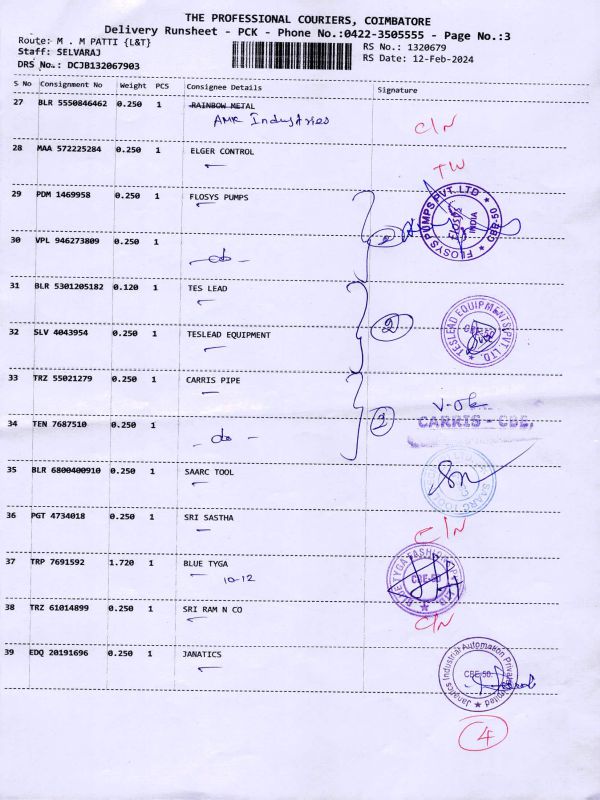 THE PROFESSIONAL COURIERS, COIMBATORE
Delivery Runsheet - PCK - Phone No.:0422-3505555 - Page No.:3
Route: M . M PATTI {L&T}
RS No.: 1320679
Staff: SELVARAJ
RS Date: 12-Feb-2024
DRS No.: DCJB132067903
S No Consignment No Weight PCS Consignee Details Signature
27 BLR 5550846462 0.250 1 RAINBOW METAL
AMR Industries C/N
28 MAA 572225284 0.250 1 ELGER CONTROL
TW
29 PDM 1469958 0.250 1 FLOSYS PUMPS
FLOSYS PUMPS PVT. LTD ★ CBE-50 ★
FLOSYS INDIA
30 VPL 946273809 0.250 1
- do - 2
31 BLR 5301205182 0.120 1 TES LEAD
2 TESLEAD EQUIPMENTS PVT. LTD. ★
32 SLV 4043954 0.250 1 TESLEAD EQUIPMENT
33 TRZ 55021279 0.250 1 CARRIS PIPE
34 TEN 7687510 0.250 1
- do - 2 CARRIS - CBE.
35 BLR 6800400910 0.250 1 SAARC TOOL
SAARC
36 PGT 4734018 0.250 1 SRI SASTHA
C/N
37 TRP 7691592 1.720 1 BLUE TYGA
10-12
BLUE TYGA FASHION
CBE-50
38 TRZ 61014899 0.250 1 SRI RAM N CO
C/N
39 EDQ 20191696 0.250 1 JANATICS
Janatics Industrial Automation Private Limited ★
CBE 50.
4